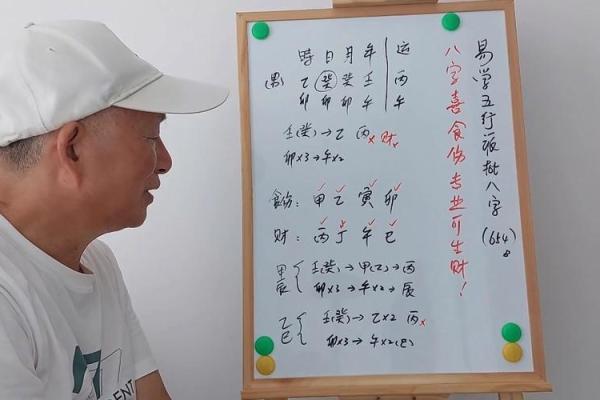 易学五行派批八字
(654)
8
八字喜食伤专业可生财！
時日月年 运
(男) 乙癸癸壬 丙
卯卯卯午 午
壬(癸)→乙 丙× 财×
卯×3→午×2
食伤：甲乙寅卯
财：丙丁午巳
甲辰 { 壬(癸)→甲(乙)→丙
卯×3→午×2→辰
乙巳 { 壬(癸)→乙×2 丙×
卯×3→午×2(巳)
ENT